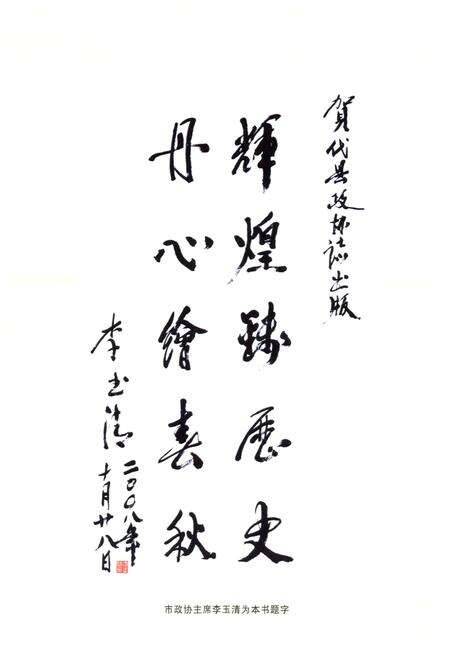 賀代县政协誌出版
輝煌鑄歷史
丹心繪春秋
李玉清
二〇〇八年
十月廿八日
市政协主席李玉清为本书题字